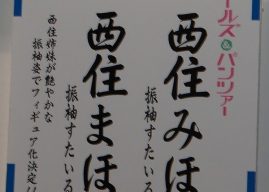 ールズ&パンツァー
西住みほ
振袖すたいる
西住まほ
振袖すたいる
西住姉妹が艶やかな
振袖姿でフィギュア化決定!!